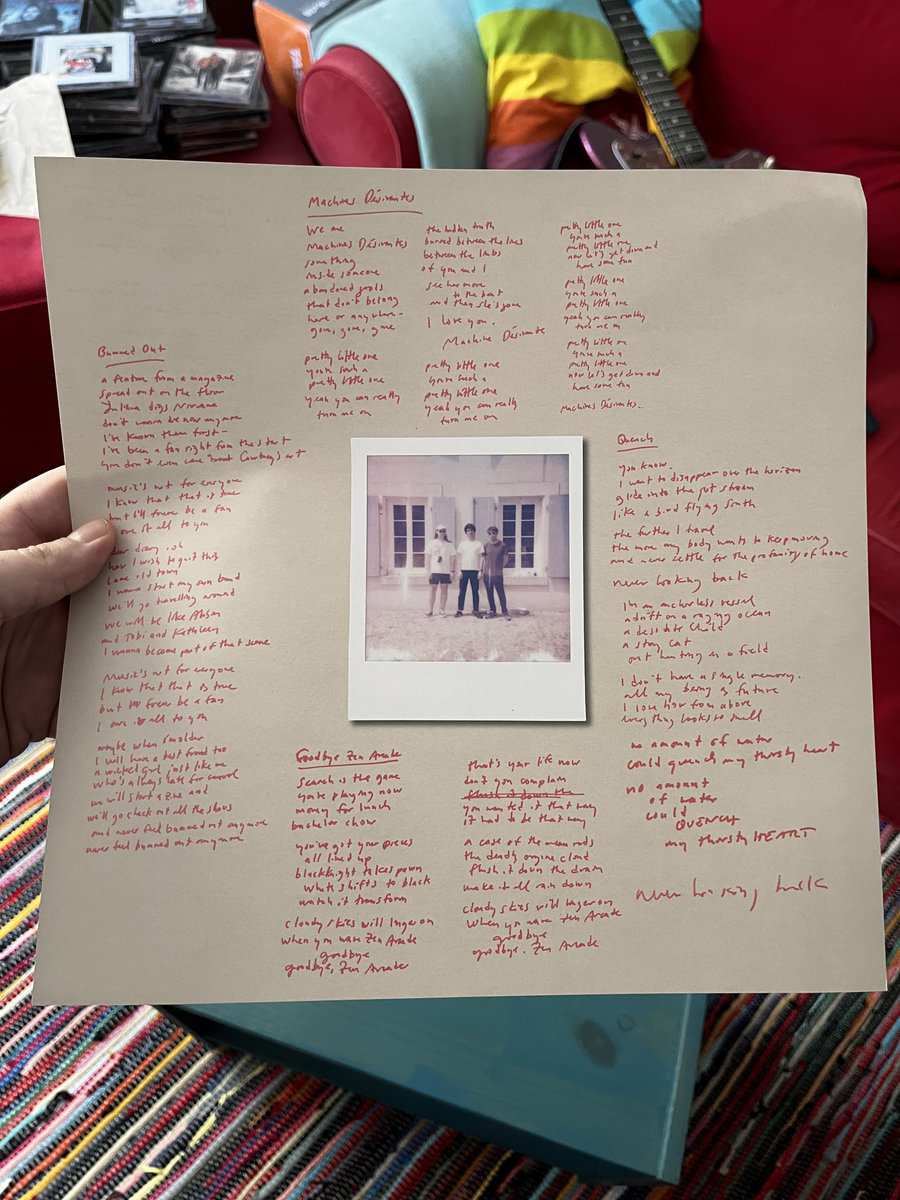 Machines Désirantes
We are
Machines Désirantes
something
inside someone
abandoned gods
that don't belong
here or anywhere -
gone, gone, gone
pretty little one
you're such a
pretty little one
yeah you can really
turn me on
the hidden truth
buried between the lines
between the limbs
of you and I
see her move
to the beat
and then she's gone
I love you,
Machine Désirante
pretty little one
you're such a
pretty little one
yeah you can really
turn me on
pretty little one
you're such a
pretty little one,
now let's get down and
have some fun
pretty little one
you're such a
pretty little one
yeah you can really
turn me on
pretty little one
you're such a
pretty little one
now let's get down and
have some fun
Machines Désirantes..
Bummed Out
a feature from a magazine
spread out on the floor
Juliana digs Nirvana
don't wanna be new anymore
I've known them first -
I've been a fan right from the start
you don't even care 'bout Courtney's art
music's art for everyone
I know that that is true
but I'll forever be a fan
I owe it all to you
dear diary, oh
how I wish to quit this
lame old town
I wanna start my own band
we'll go travelling around
we will be like Alison
and Tobi and Kathleen
I wanna become part of that scene
Music's art for everyone
I know that that is true
but I'll forever be a fan
I owe it all to you
maybe when I'm older
I will have a best friend too
a wicked girl, just like me
who's always late for school
we will start a zine and
we'll go check out all the shows
and never feel bummed out anymore
never feel bummed out anymore
Quench
you know,
I want to disappear over the horizon
glide into the jet stream
like a bird flying south
the further I travel
the more my body wants to keep moving
and never settle for the profanity of home
never looking back
I'm an anchorless vessel
adrift on a raging ocean
a desolate child
a stray cat
out hunting in a field
I don't have a single memory.
all my being is future
I love how from above
everything looks so small
no amount of water
could quench my thirsty heart
no amount
of water
could
QUENCH
my thirsty HEART
never looking back
Goodbye Zen Arcade
search is the game
you're playing now
money for lunch
bachelor chow
you've got your pieces
all lined up
black knight takes pawn
white shifts to black
watch it transform
cloudy skies will linger on
when you wave Zen Arcade
goodbye
goodbye, Zen Arcade
that's your life now
don't you complain
flush it down the
you wanted it that way
it had to be that way
a case of the mean reds
the deadly engine cloud
flush it down the drain
make it all rain down
cloudy skies will linger on
when you wave Zen Arcade
goodbye
goodbye, Zen Arcade